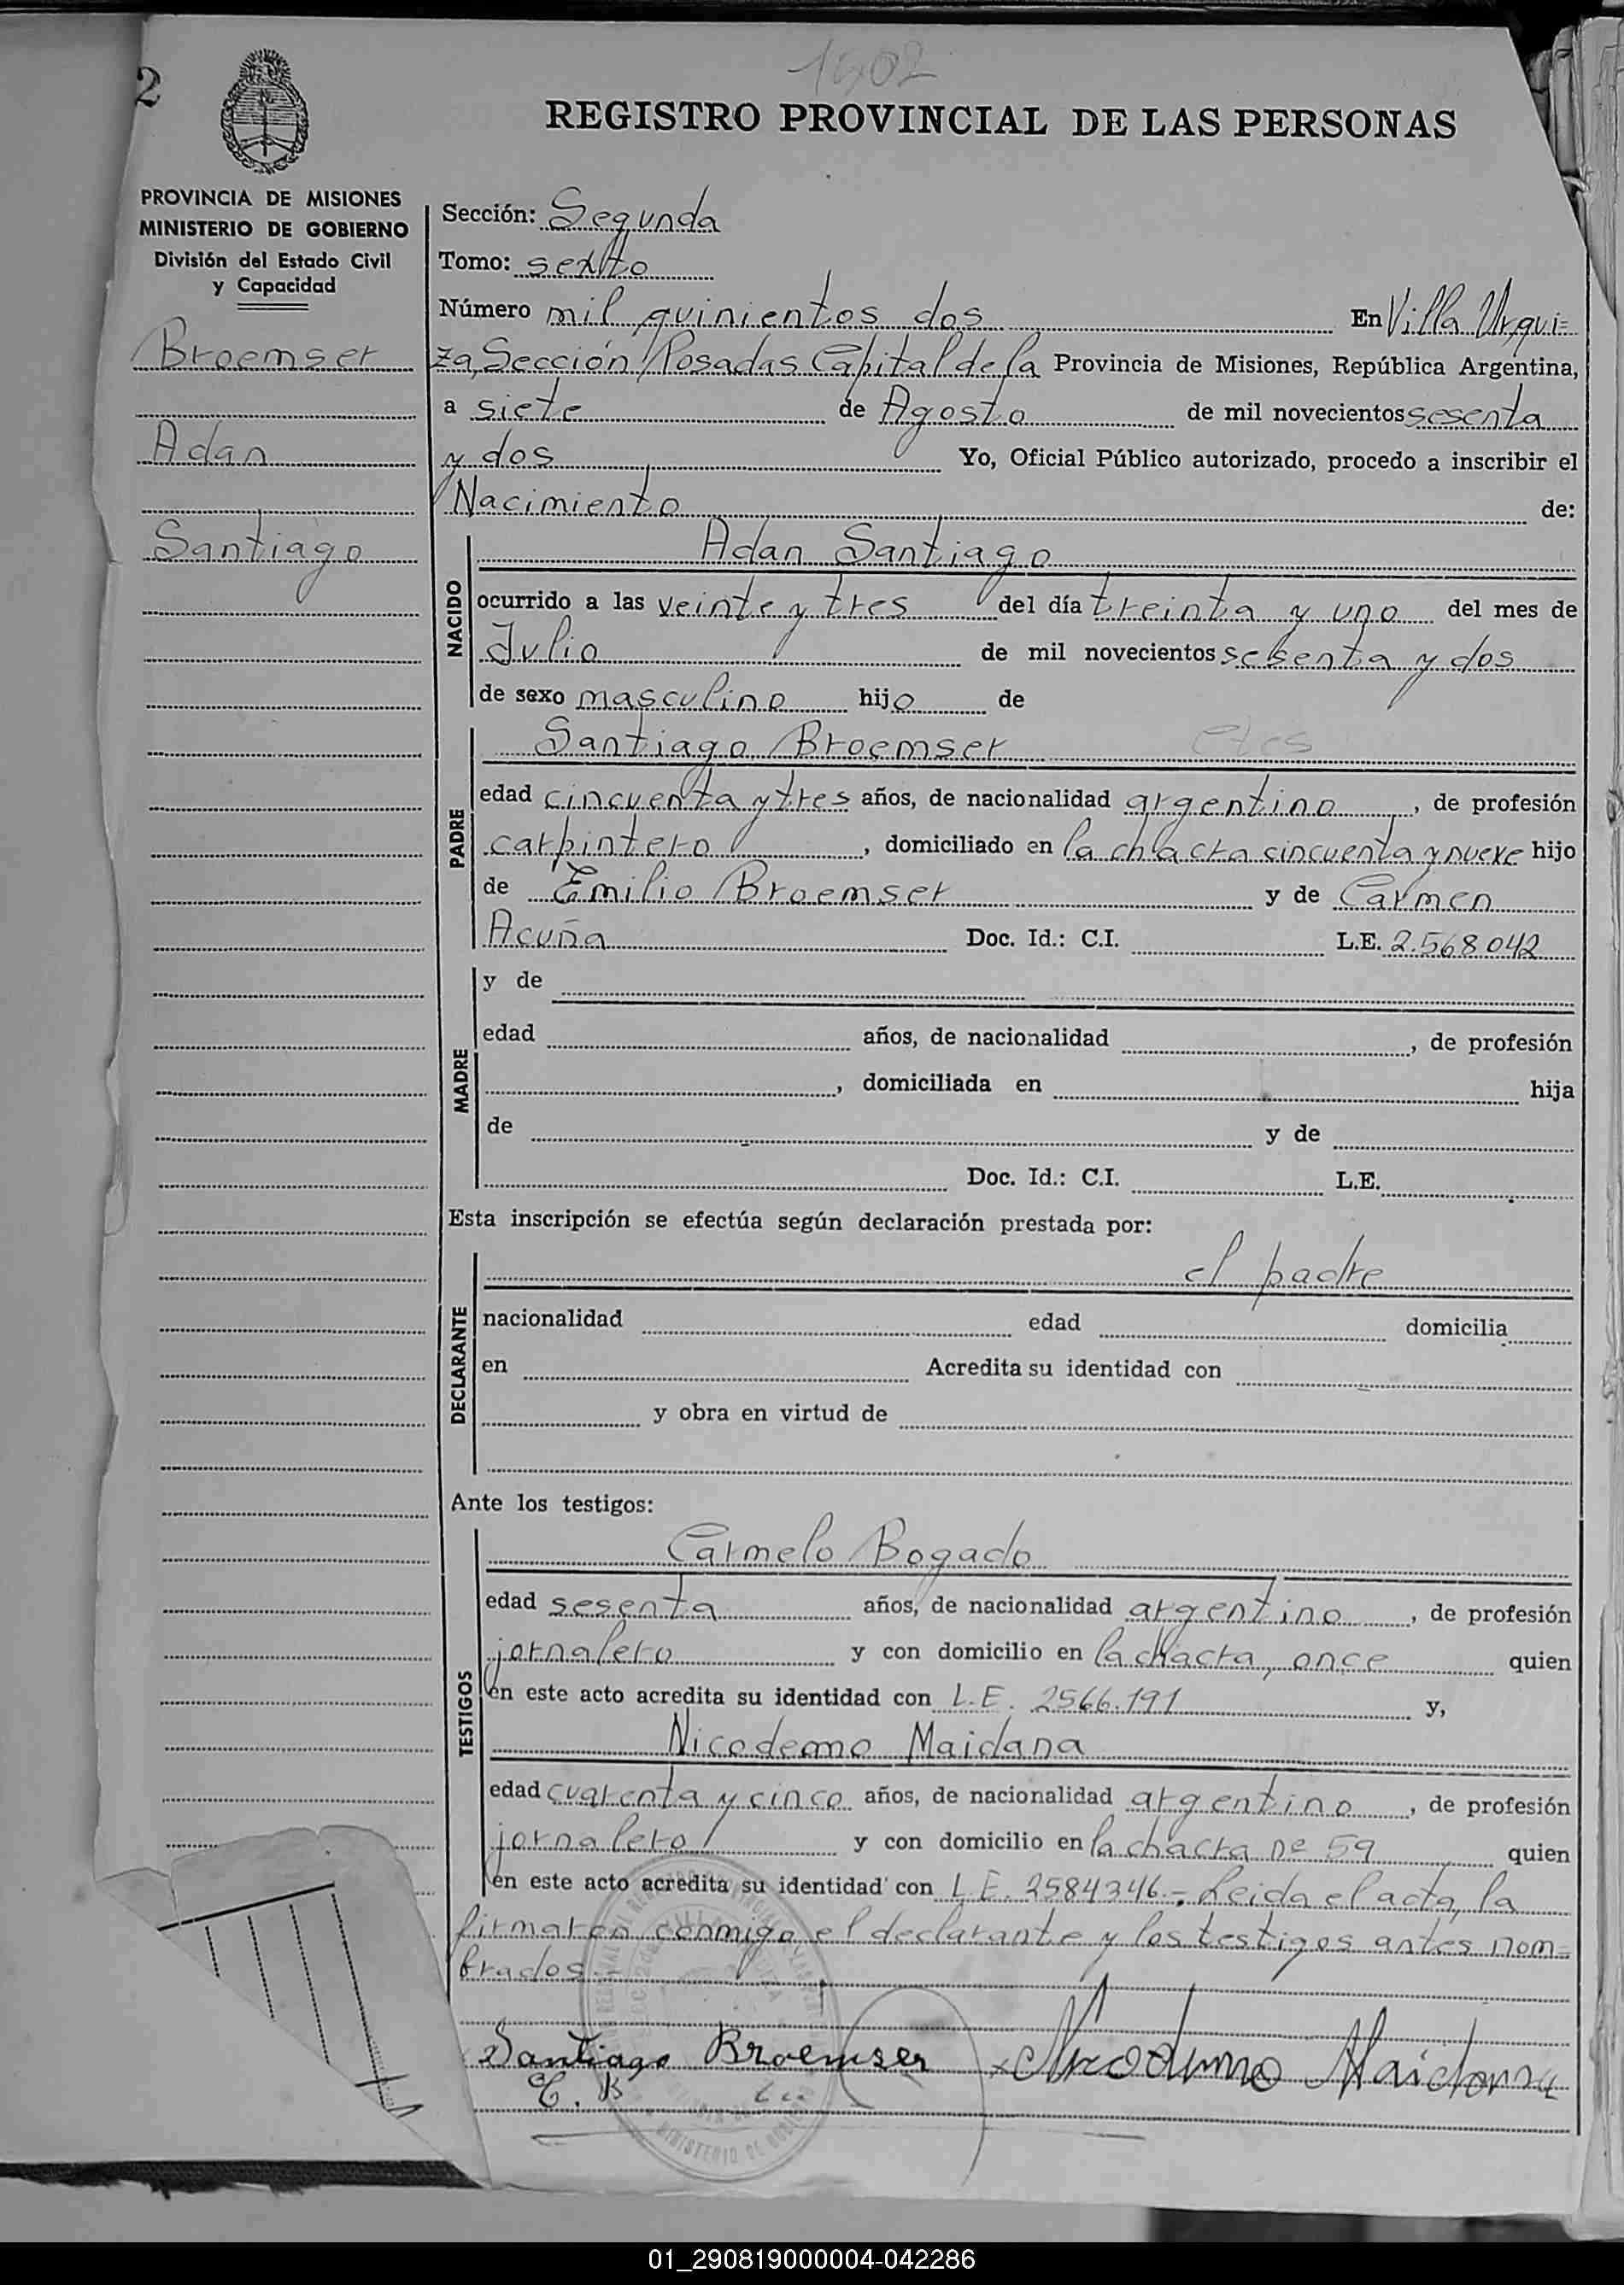 1502
2
REGISTRO PROVINCIAL DE LAS PERSONAS
PROVINCIA DE MISIONES
MINISTERIO DE GOBIERNO
División del Estado Civil
y Capacidad
Broemser
Adan
Santiago
Sección: Segunda
Tomo: sexto
Número mil quinientos dos En Villa Urqui=
za, Sección Posadas Capital de la Provincia de Misiones, República Argentina,
a siete de Agosto de mil novecientos sesenta
y dos Yo, Oficial Público autorizado, procedo a inscribir el
Nacimiento de:
NACIDO
Adan Santiago
ocurrido a las veinte y tres del día treinta y uno del mes de
Julio de mil novecientos sesenta y dos
de sexo masculino hijo de
PADRE
Santiago Broemser
edad cincuenta y tres años, de nacionalidad argentino, de profesión
carpintero, domiciliado en la chacra cincuenta y nueve hijo
de Emilio Broemser y de Carmen
Acuña Doc. Id.: C.I. L.E. 2.568.042
MADRE
y de
edad años, de nacionalidad , de profesión
, domiciliada en hija
de y de
Doc. Id.: C.I. L.E.
Esta inscripción se efectúa según declaración prestada por:
DECLARANTE
el padre
nacionalidad edad domicilia
en Acredita su identidad con
y obra en virtud de
Ante los testigos:
TESTIGOS
Carmelo Bogado
edad sesenta años, de nacionalidad argentino, de profesión
jornalero y con domicilio en la chacra, once quien
en este acto acredita su identidad con L.E. 2566.191 y,
Nicodemo Maidana
edad cuarenta y cinco años, de nacionalidad argentino, de profesión
jornalero y con domicilio en la chacra nº 59 quien
en este acto acredita su identidad con L.E. 2584346.-. Leida el acta, la
firmaron conmigo el declarante y los testigos antes nom=
brados.-
Santiago Broemser Nicodemo Maidana
C. B
MINISTERIO DE
01_290819000004-042286